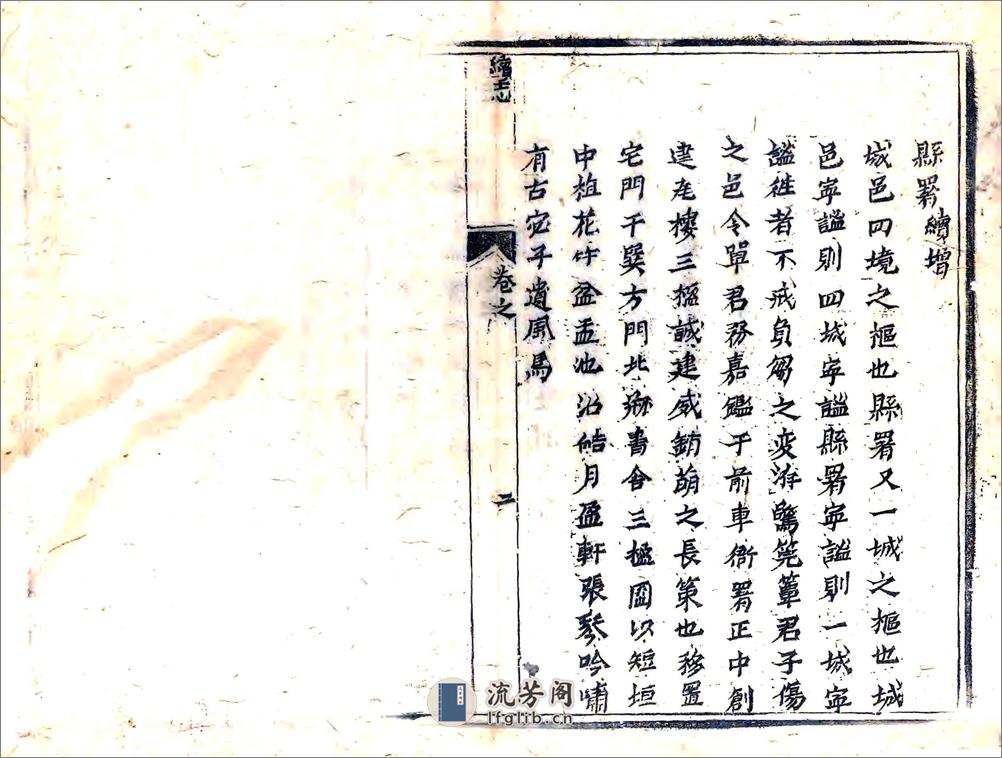 縣署續增
城邑四境之摳也縣署又一城之摳也城
邑寕謐則四城寕謐縣署寕謐則一城寕
謐徃者不戒負芻之变洊驚筦簟君子傷
之邑令單君務嘉鑑于前車衙署正中創
建樓三楹誠建威銷萌之長策也移置
宅門于巽方門北書舍三楹以短垣
中植花竹盆盂池沼皓月盈軒張琴吟嘯
有古宓子遺風焉
續志
卷之
二
流芳阁
lfglib.cn